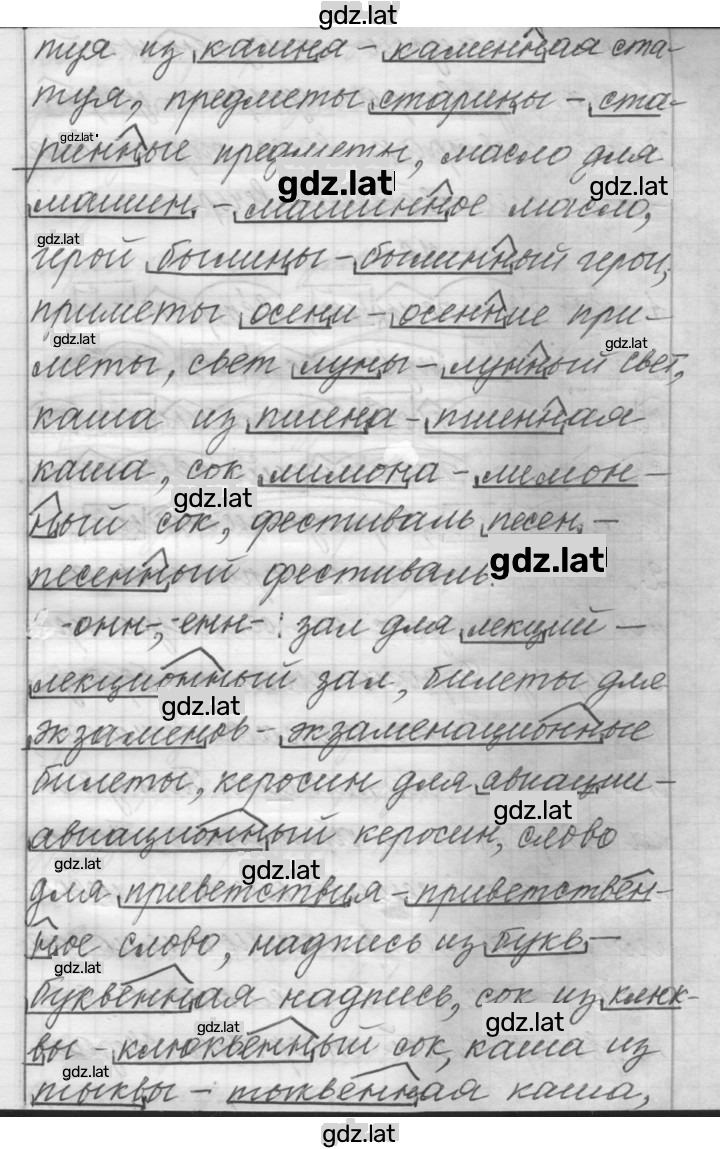 gdz.lat
туя из камня - каменная ста-
туя, предметы старины - ста-
gdz.lat
ринные предметы, масло для
gdz.lat
gdz.lat
машин - машинное масло,
gdz.lat
герой былины - былинный герой,
приметы осени - осенние при-
gdz.lat
gdz.lat
меты, свет луны - лунный свет,
каша из пшена - пшенная
каша, сок лимона - лимон-
gdz.lat
ный сок, фестиваль песен -
gdz.lat
песенный фестиваль.
-онн-, -енн-: зал для лекций -
лекционный зал, билеты для
gdz.lat
экзаменов - экзаменационные
билеты, керосин для авиации -
gdz.lat
авиационный керосин, слово
gdz.lat
gdz.lat
для приветствия - приветствен-
ное слово, надпись из букв -
gdz.lat
буквенная надпись, сок из клюк-
gdz.lat
gdz.lat
вы - клюквенный сок, каша из
gdz.lat
тыквы - тыквенная каша,
gdz.lat